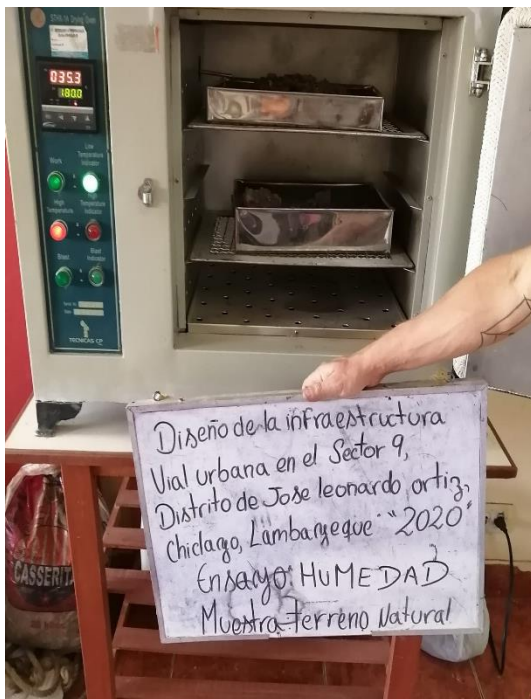 STHX-1A Drying Oven
035.3
180.0
Work
Low Temperature Indicator
High Temperature
Temperature Indicator
Blast
Blast Indicator
TECNICAS CP
Diseño de la infraestructura
Vial urbana en el Sector 9,
Distrito de Jose leonardo ortiz,
Chiclayo, Lambayeque "2020"
Ensayo: HUMEDAD
Muestra Terreno Natural
CASSERITA